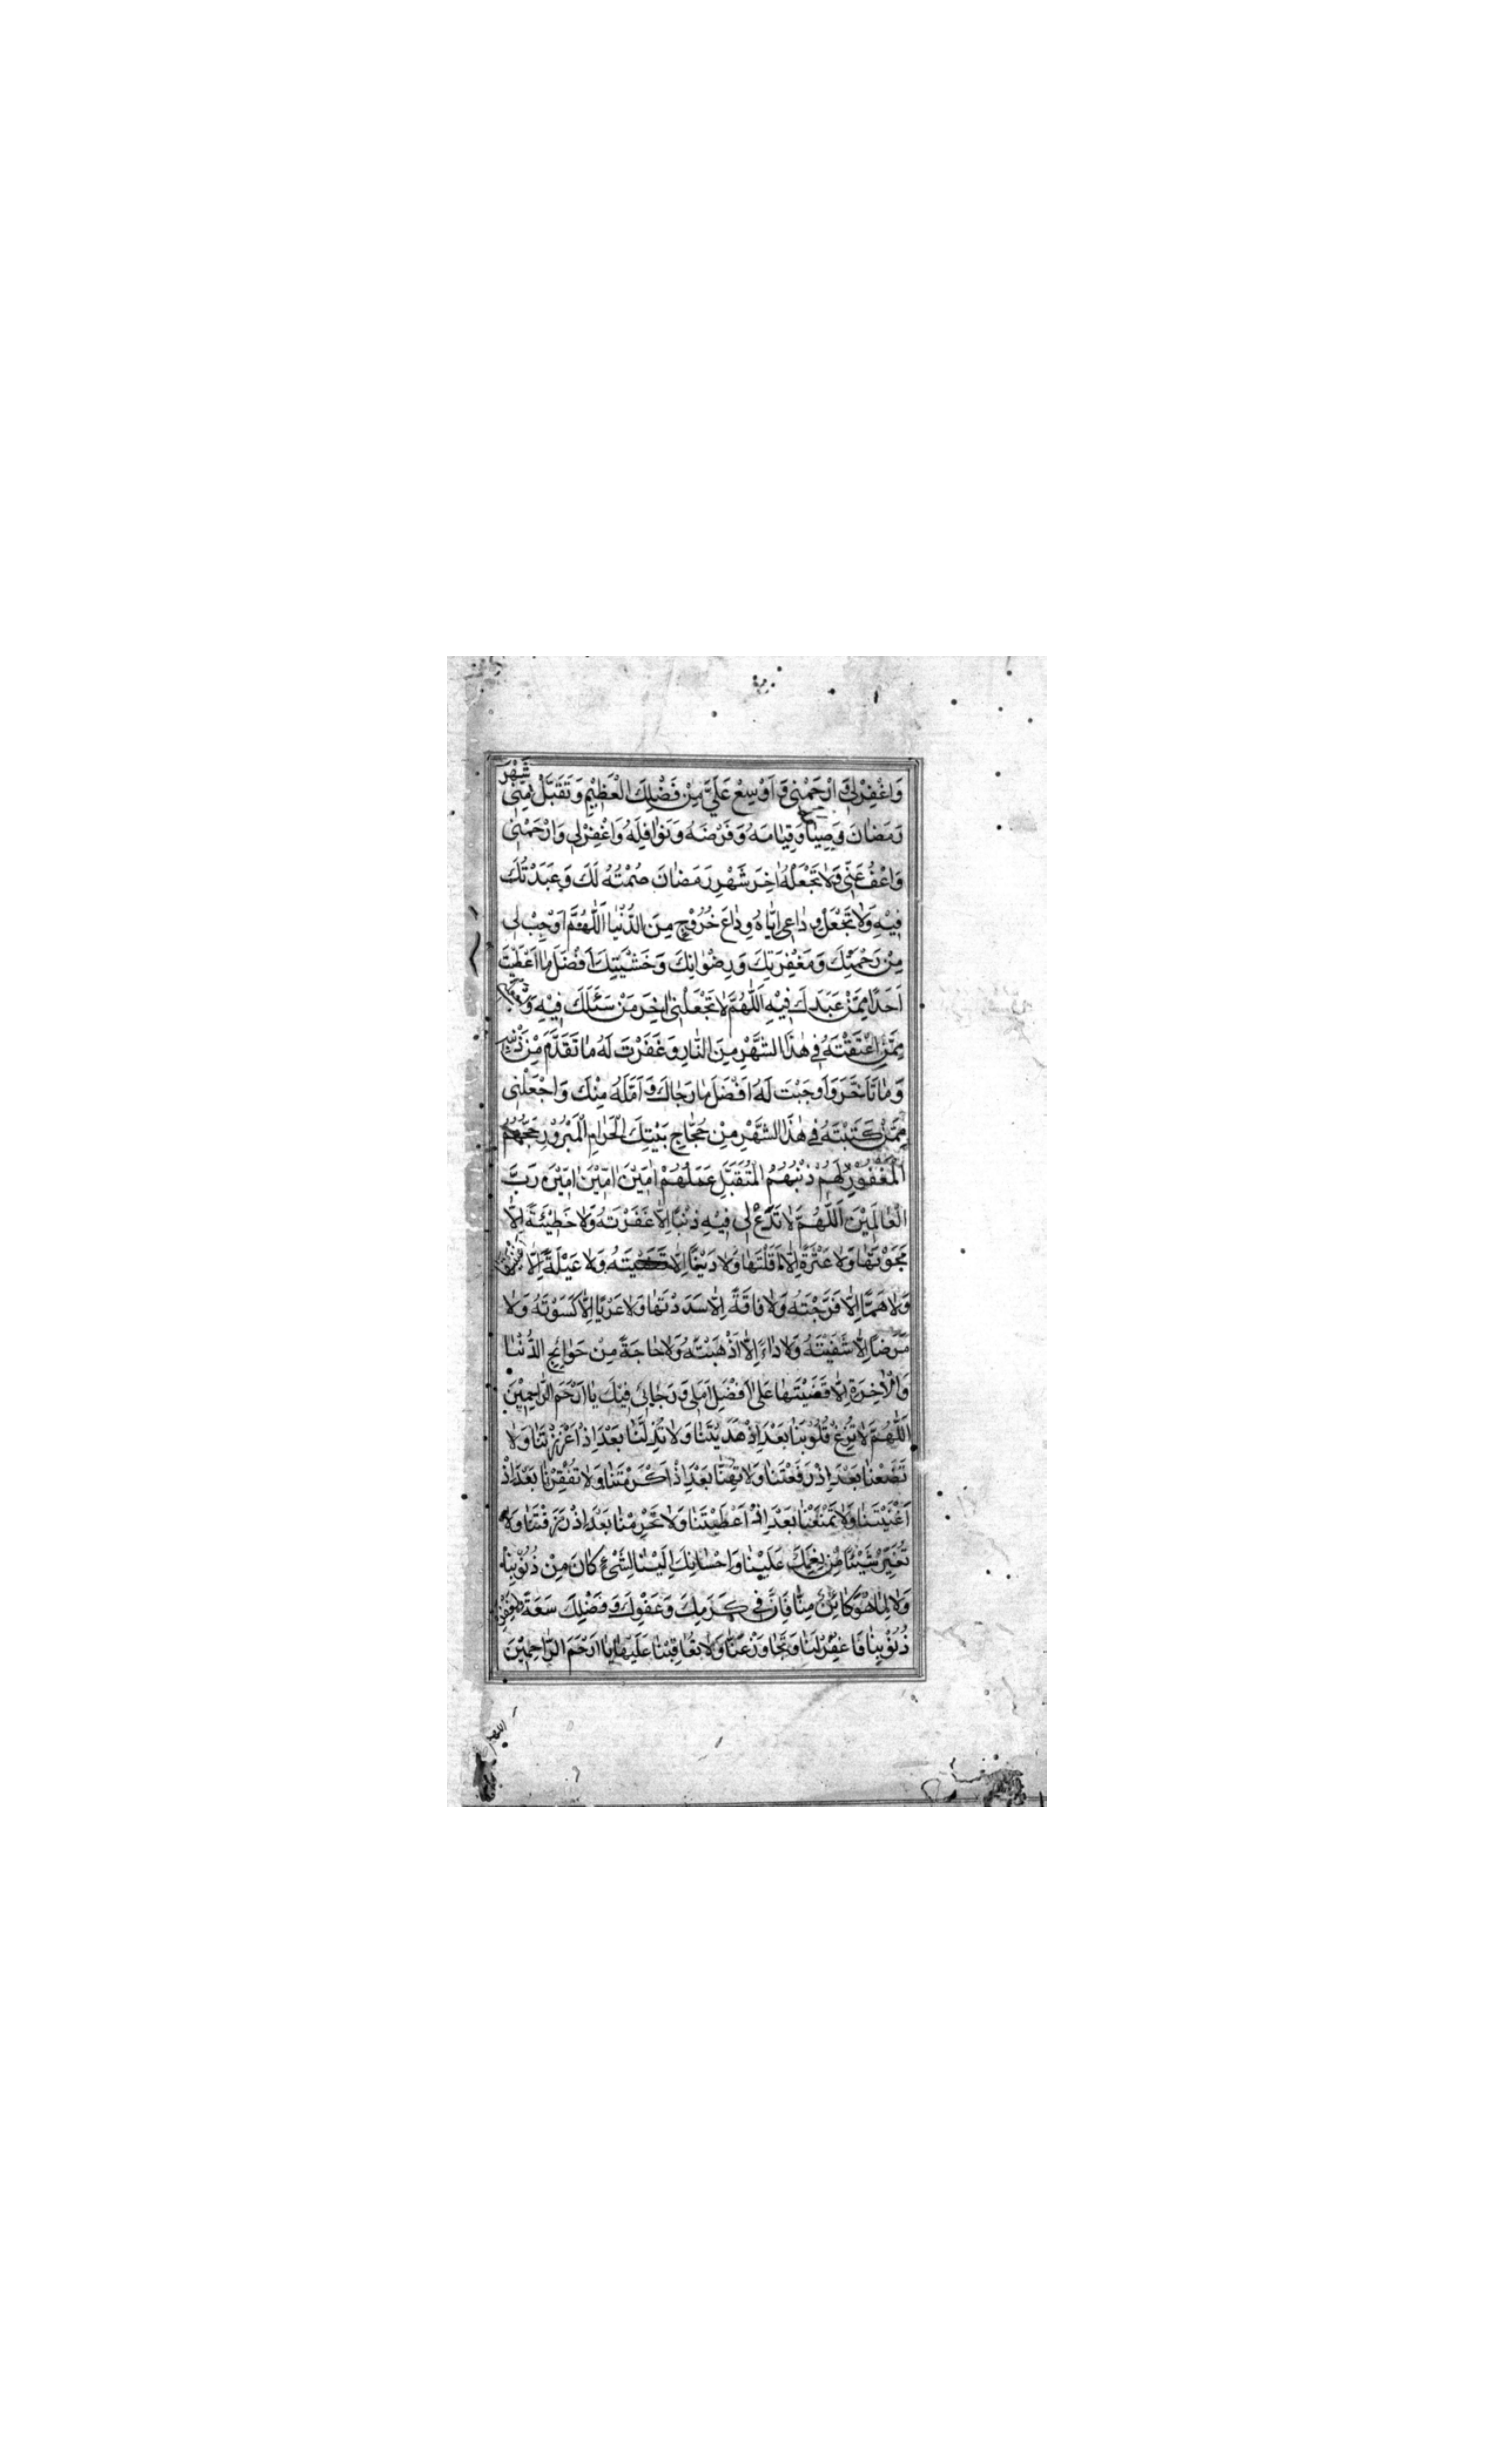 وَاغْفِرْلِي وَارْحَمْنِى وَ اَوْسِعْ عَلَيَّ مِنْ فَضْلِكَ الْعَظِيْمِ وَتَقَبَّلْ مِنِّى شَهْرَ
رَمَضٰانَ وَصِيٰا وَقِيٰامَهُ وَفَرْضَهُ وَنَوٰافِلَهُ وَاغْفِرْلِي وَارْحَمْنِى
وَاعْفُ عَنِّى وَلاٰتَجْعَلْهُ اٰخِرَ شَهْرِ رَمَضٰانَ صُمْتُهُ لَكَ وَعَبَدْتُكَ
فِيْهِ وَلاٰتَجْعَلْ وِدٰاعِى اِيّٰاهُ وِدٰاعَ خُرُوْجِى مِنَ الدُّنْيٰا اَللّٰهُمَّ اَوْجِبْ لِى
مِنْ رَحْمَتِكَ وَمَغْفِرَتِكَ وَرِضْوٰانِكَ وَخَشْيَتِكَ اَفْضَلَ مٰا اَعْطَيْتَ
اَحَدًا مِمَّنْ عَبَدَكَ فِيْهِ اَللّٰهُمَّ لاٰتَجْعَلْنِى اٰخِرَ مَنْ سَئَلَكَ فِيْهِ وَ
مِمَّنْ اَعْتَقْتَهُ فِى هٰذَا الشَّهْرِ مِنَ النّٰارِ وَغَفَرْتَ لَهُ مٰا تَقَدَّمَ مِنْ ذَنْبِهِ
وَمٰا تَاَخَّرَ وَاَوْجَبْتَ لَهُ اَفْضَلَ مٰا رَجٰاكَ وَ اَمَّلَهُ مِنْكَ وَاجْعَلْنِى
مِمَّنْ كَتَبْتَهُ فِى هٰذَا الشَّهْرِ مِنْ حُجّٰاجِ بَيْتِكَ الْحَرٰامِ الْمَبْرُوْرِ حَجُّهُمُ
الْمَغْفُوْرِ لَهُمْ ذَنْبُهُمُ الْمُتَقَبَّلِ عَمَلُهُمْ اٰمِيْنَ اٰمِيْنَ اٰمِيْنَ رَبَّ
الْعٰالَمِيْنَ اَللّٰهُمَّ لاٰ تَدَعْ لِى فِيْهِ ذَنْبًا اِلاّٰ غَفَرْتَهُ وَلاٰ خَطِيْئَةً اِلاّٰ
مَحَوْتَهٰا وَلاٰ عَثْرَةً اِلاّٰ اَقَلْتَهٰا وَلاٰ دَيْنًا اِلاّٰ قَضَيْتَهُ وَلاٰ عَيْلَةً اِلاّٰ اَغْنَيْتَهٰا
وَلاٰ هَمًّا اِلاّٰ فَرَّجْتَهُ وَلاٰ فٰاقَةً اِلاّٰ سَدَدْتَهٰا وَلاٰ عُرْيًا اِلاّٰ كَسَوْتَهُ وَلاٰ
مَرَضًا اِلاّٰ شَفَيْتَهُ وَلاٰ دٰاءً اِلاّٰ اَذْهَبْتَهُ وَلاٰ حٰاجَةً مِنْ حَوٰائِجِ الدُّنْيٰا
وَالْاٰخِرَةِ اِلاّٰ قَضَيْتَهٰا عَلىٰ اَفْضَلِ اَمَلِى وَ رَجٰائِى فِيْكَ يٰا اَرْحَمَ الرّٰاحِمِيْنَ
اَللّٰهُمَّ لاٰ تُزِغْ قُلُوْبَنٰا بَعْدَ اِذْ هَدَيْتَنٰا وَلاٰ تُذِلَّنٰا بَعْدَ اِذْ اَعْزَزْتَنٰا وَلاٰ
تَضَعْنٰا بَعْدَ اِذْ رَفَعْتَنٰا وَلاٰ تُهِنّٰا بَعْدَ اِذْ اَكْرَمْتَنٰا وَلاٰ تُفْقِرْنٰا بَعْدَ اِذْ
اَغْنَيْتَنٰا وَلاٰ تَمْنَعْنٰا بَعْدَ اِذْ اَعْطَيْتَنٰا وَلاٰ تَحْرِمْنٰا بَعْدَ اِذْ رَزَقْتَنٰا وَلاٰ
تُغَيِّرْ شَيْئًا مِنْ نِعَمِكَ عَلَيْنٰا وَاِحْسٰانِكَ اِلَيْنٰا لِشَىْءٍ كٰانَ مِنْ ذُنُوْبِنٰا
وَلاٰ لِمٰا هُوَ كٰائِنٌ مِنّٰا فَاِنَّ فِى كَرَمِكَ وَعَفْوِكَ وَ فَضْلِكَ سَعَةً لِمَغْفِرَةِ
ذُنُوْبِنٰا فَاغْفِرْ لَنٰا وَتَجٰاوَزْ عَنّٰا وَلاٰ تُعٰاقِبْنٰا عَلَيْهٰا يٰا اَرْحَمَ الرّٰاحِمِيْنَ
اللهم